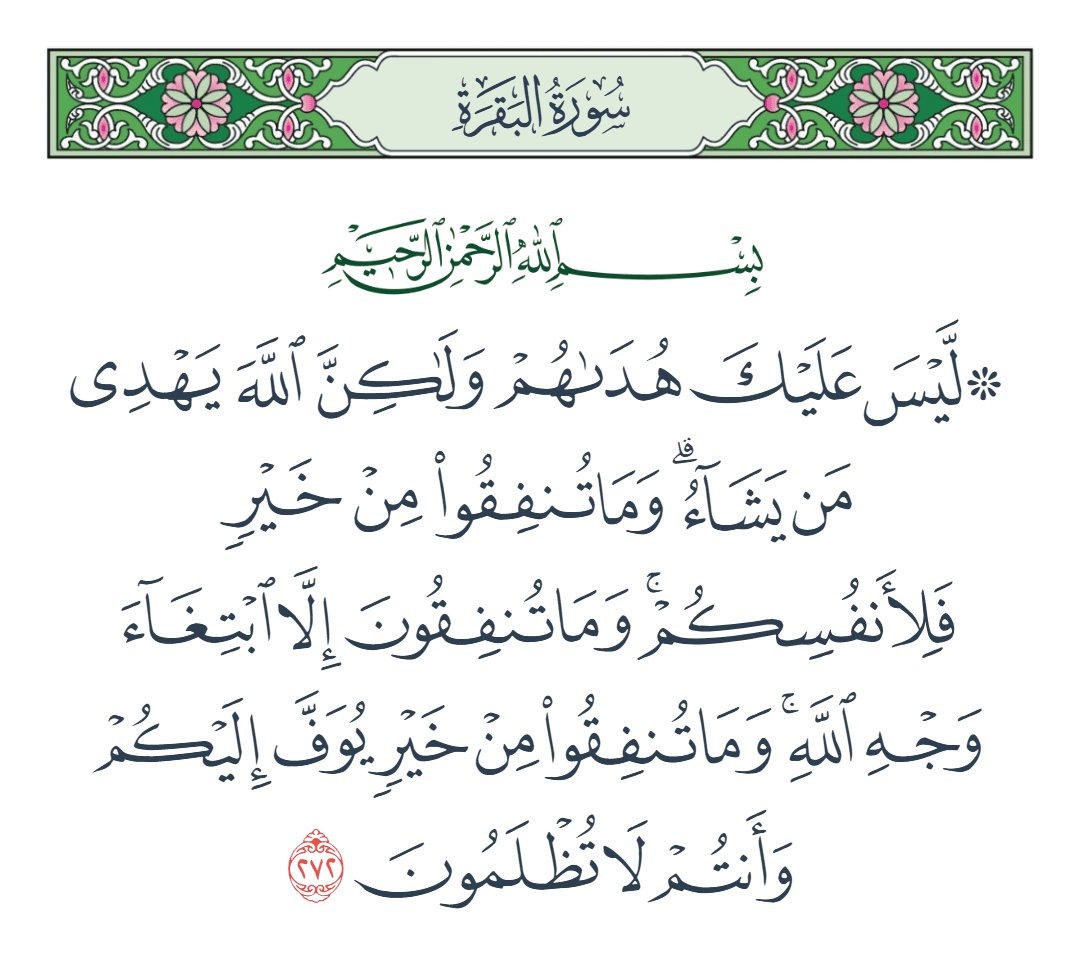 سُورَةُ البَقَرَةِ
بِسْمِ ٱللَّهِ ٱلرَّحْمَٰنِ ٱلرَّحِيمِ
۞ لَّيْسَ عَلَيْكَ هُدَىٰهُمْ وَلَٰكِنَّ ٱللَّهَ يَهْدِى
مَن يَشَآءُ ۗ وَمَا تُنفِقُوا۟ مِنْ خَيْرٍ
فَلِأَنفُسِكُمْ ۚ وَمَا تُنفِقُونَ إِلَّا ٱبْتِغَآءَ
وَجْهِ ٱللَّهِ ۚ وَمَا تُنفِقُوا۟ مِنْ خَيْرٍ يُوَفَّ إِلَيْكُمْ
وَأَنتُمْ لَا تُظْلَمُونَ ٢٧٢